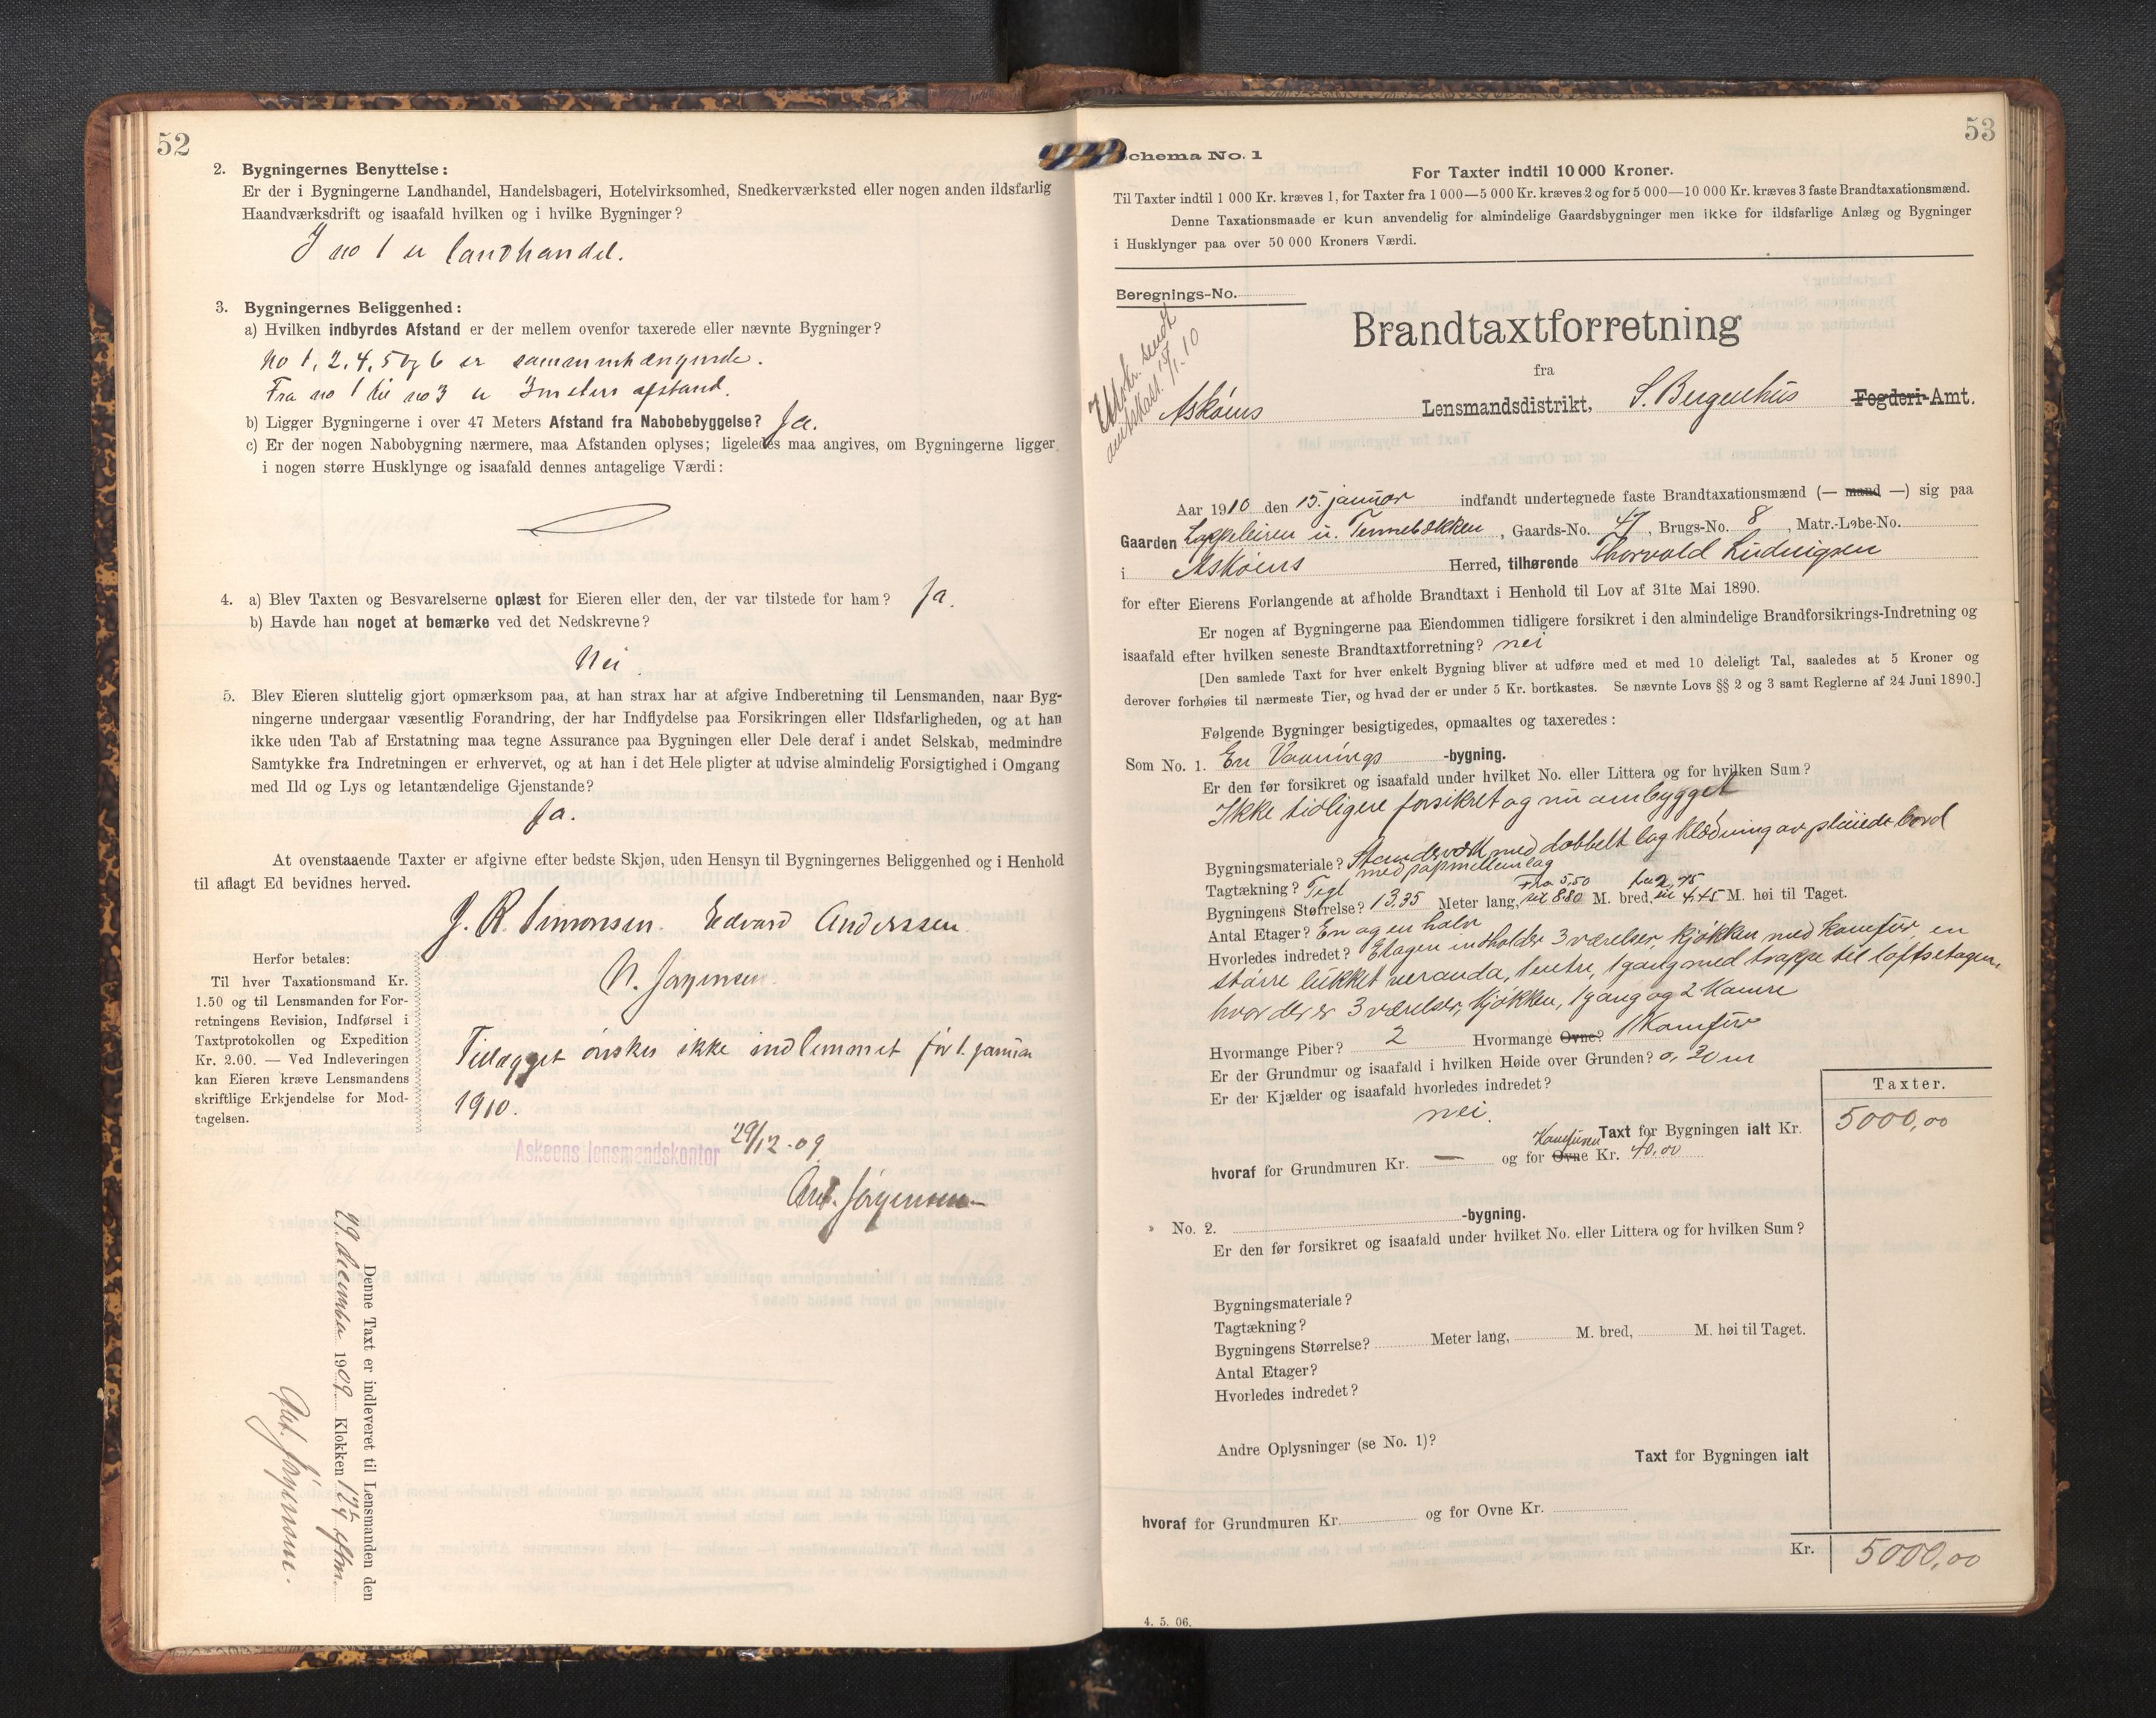 52
2. Bygningernes Benyttelse:
Er der i Bygningerne Landhandel, Handelsbageri, Hotelvirksomhed, Snedkerværksted eller nogen anden ildsfarlig
Haandværksdrift og isaafald hvilken og i hvilke Bygninger?
I no 1 er landhandel.
3. Bygningernes Beliggenhed:
a) Hvilken indbyrdes Afstand er der mellem ovenfor taxerede eller nævnte Bygninger?
No 1, 2, 4, 5 og 6 er sammenhængende.
Fra no 1 til no 3 er 3 meters afstand.
b) Ligger Bygningerne i over 47 Meters Afstand fra Nabobebyggelse? Ja.
c) Er der nogen Nabobygning nærmere, maa Afstanden oplyses; ligeledes maa angives, om Bygningerne ligger
i nogen større Husklynge og isaafald dennes antagelige Værdi:
4. a) Blev Taxten og Besvarelserne oplæst for Eieren eller den, der var tilstede for ham? Ja.
b) Havde han noget at bemærke ved det Nedskrevne?
Nei
5. Blev Eieren sluttelig gjort opmærksom paa, at han strax har at afgive Indberetning til Lensmanden, naar Byg-
ningerne undergaar væsentlig Forandring, der har Indflydelse paa Forsikringen eller Ildsfarligheden, og at han
ikke uden Tab af Erstatning maa tegne Assurance paa Bygningen eller Dele deraf i andet Selskab, medmindre
Samtykke fra Indretningen er erhvervet, og at han i det Hele pligter at udvise almindelig Forsigtighed i Omgang
med Ild og Lys og letantændelige Gjenstande?
Ja.
At ovenstaaende Taxter er afgivne efter bedste Skjøn, uden Hensyn til Bygningernes Beliggenhed og i Henhold
til aflagt Ed bevidnes herved.
J. R. Simonsen. Edvard Anderssen.
N. Jørgensen.
Herfor betales:
Til hver Taxationsmand Kr.
1.50 og til Lensmanden for For-
retningens Revision, Indførsel i
Taxtprotokollen og Expedition
Kr. 2.00. — Ved Indleveringen
kan Eieren kræve Lensmandens
skriftlige Erkjendelse for Mod-
tagelsen.
Tillægget ønskes ikke indlemmet før 1. januar
1910.
Askøens lensmandskontor 29/12-09
Ant. Jørgensen
Denne Taxt er indleveret til Lensmanden den
29. december 1909 Klokken 12 1/4 eftm.
Ant. Jørgensen.
53
Schema No. 1
For Taxter indtil 10 000 Kroner.
Til Taxter indtil 1 000 Kr. kræves 1, for Taxter fra 1 000—5 000 Kr. kræves 2 og for 5 000—10 000 Kr. kræves 3 faste Brandtaxationsmænd.
Denne Taxationsmaade er kun anvendelig for almindelige Gaardsbygninger men ikke for ildsfarlige Anlæg og Bygninger
i Husklynger paa over 50 000 Kroners Værdi.
Beregnings-No.
Brandtaxtforretning
fra
Askøens Lensmandsdistrikt, S. Bergenhus Fogderi-Amt.
Aar 1910 den 15. januar indfandt undertegnede faste Brandtaxationsmænd (— mand —) sig paa
Gaarden Loppeleiren u. Tennebækken, Gaards-No. 47, Brugs-No. 8, Matr.-Løbe-No.
i Askøens Herred, tilhørende Thorvald Ludvigsen
for efter Eierens Forlangende at afholde Brandtaxt i Henhold til Lov af 31te Mai 1890.
Er nogen af Bygningerne paa Eiendommen tidligere forsikret i den almindelige Brandforsikrings-Indretning og
isaafald efter hvilken seneste Brandtaxtforretning? nei
[Den samlede Taxt for hver enkelt Bygning bliver at udføre med et med 10 deleligt Tal, saaledes at 5 Kroner og
derover forhøies til nærmeste Tier, og hvad der er under 5 Kr. bortkastes. Se nævnte Lovs §§ 2 og 3 samt Reglerne af 24 Juni 1890.]
Følgende Bygninger besigtigedes, opmaaltes og taxeredes:
Som No. 1. En Vaanings -bygning.
Er den før forsikret og isaafald under hvilket No. eller Littera og for hvilken Sum?
Ikke tidligere forsikret og nu ombygget
Bygningsmateriale? Standsværk med dobbelt lag klædning av pløiede bord
med papmellemlag
Tagtækning? Tegl
Bygningens Størrelse? 13,35 Meter lang, Fra 5,50 til 8,80 M. bred, fra 2,75 til 4,45 M. høi til Taget.
Antal Etager? En og en halv
Hvorledes indredet? Etagen indholder 3 værelser, kjøkken med komfur, en
større lukket veranda, 1 entre, 1 gang med trappe til loftsetagen,
hvor der er 3 værelser, kjøkken, 1 gang og 2 kamre
Hvormange Piber? 2 Hvormange Ovne? 1 Komfur
Er der Grundmur og isaafald i hvilken Høide over Grunden? 0,30 m
Er der Kjælder og isaafald hvorledes indredet?
nei.
Taxter.
Taxt for Bygningen ialt Kr. 5000,00
hvoraf for Grundmuren Kr. — og for Ovne Komfuren Kr. 40,00
No. 2. -bygning.
Er den før forsikret og isaafald under hvilket No. eller Littera og for hvilken Sum?
Bygningsmateriale?
Tagtækning?
Bygningens Størrelse? Meter lang, M. bred, M. høi til Taget.
Antal Etager?
Hvorledes indredet?
Andre Oplysninger (se No. 1)?
Taxt for Bygningen ialt
hvoraf for Grundmuren Kr. og for Ovne Kr.
Kr. 5000,00
4. 5. 06.